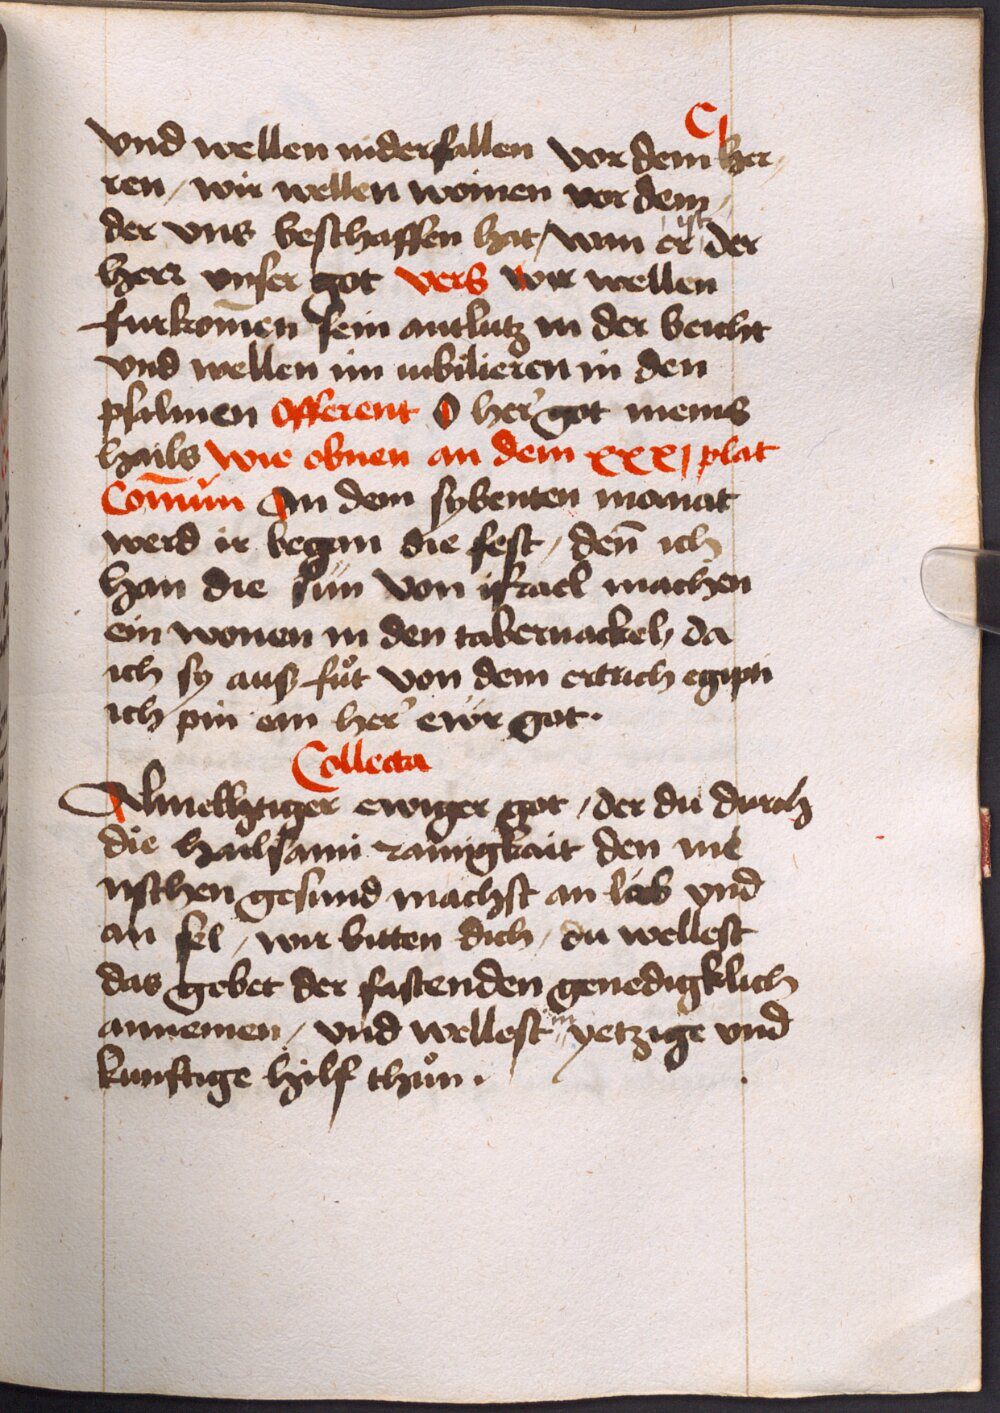 Cj
vnd wellen niderfallen vor dem her,
ren / wir wellen woinen vor dem,
der vns beschaffen hat / wan er ist der
herr vnser got vers wir wellen
furkom̄en sein antlutz in der beicht
vnd wellen im iubilieren in den
psalmen Offerent O her͛ got meins
hails wie obnen an dem xxxj plat
Com̄un An dem sybenten monat
werd ir began die fest / den̄ ich
han die sün von israel machen
ein wonen in den tabernackeln da
ich sy auß fuͦt von dem ertrich egipti
ich pin ein her͛ ewr got.
Collecta
Almechtiger ewiger got / der du durch
die hailsami rainigkait den me
nschen gesund machst an leib vnd
an sel / wir bitten dich / du wellest
das gebet der fastenden genedigklich
annemen / vnd wellest in yetzige vnd
kunftige hilf thuͦn.